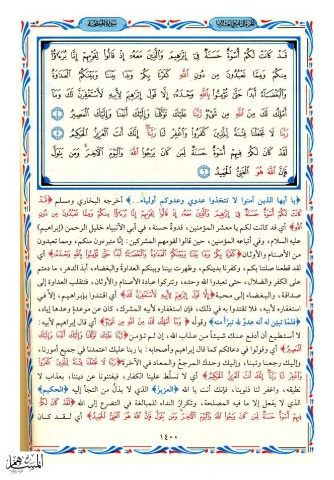 قَدْ كَانَتْ لَكُمْ أُسْوَةٌ حَسَنَةٌ فِي إِبْرَاهِيمَ وَالَّذِينَ مَعَهُ إِذْ قَالُوا لِقَوْمِهِمْ إِنَّا بُرَءَاؤُا
مِنكُمْ وَمِمَّا تَعْبُدُونَ مِن دُونِ اللَّهِ كَفَرْنَا بِكُمْ وَبَدَا بَيْنَنَا وَبَيْنَكُمُ الْعَدَاوَةُ
وَالْبَغْضَاءُ أَبَدًا حَتَّىٰ تُؤْمِنُوا بِاللَّهِ وَحْدَهُ إِلَّا قَوْلَ إِبْرَاهِيمَ لِأَبِيهِ لَأَسْتَغْفِرَنَّ لَكَ وَمَا
أَمْلِكُ لَكَ مِنَ اللَّهِ مِن شَيْءٍ رَّبَّنَا عَلَيْكَ تَوَكَّلْنَا وَإِلَيْكَ أَنَبْنَا وَإِلَيْكَ الْمَصِيرُ ٤
رَبَّنَا لَا تَجْعَلْنَا فِتْنَةً لِّلَّذِينَ كَفَرُوا وَاغْفِرْ لَنَا رَبَّنَا إِنَّكَ أَنتَ الْعَزِيزُ الْحَكِيمُ ٥
لَقَدْ كَانَ لَكُمْ فِيهِمْ أُسْوَةٌ حَسَنَةٌ لِّمَن كَانَ يَرْجُو اللَّهَ وَالْيَوْمَ الْآخِرَ وَمَن يَتَوَلَّ
فَإِنَّ اللَّهَ هُوَ الْغَنِيُّ الْحَمِيدُ ٦
﴿يا أيها الذين آمنوا لا تتخذوا عدوي وعدوكم أولياء..﴾ أخرجه البخاري ومسلم ﴿قَدْ
كَانَتْ لَكُمْ أُسْوَةٌ حَسَنَةٌ فِي إِبْرَاهِيمَ وَالَّذِينَ مَعَهُ إِذْ قَالُوا لِقَوْمِهِمْ إِنَّا بُرَءَاؤُا مِنكُمْ وَمِمَّا تَعْبُدُونَ مِن دُونِ
اللَّهِ﴾ أي قد كانت لكم يا معشر المؤمنين، قدوةٌ حسنة، في أبي الأنبياء خليل الرحمن (إبراهيم)
عليه السلام، وفي أتباعه المؤمنين، حين قالوا لقومهم المشركين: إنَّا متبرئون منكم، ومما تعبدون
من الأصنام والأوثان ﴿كَفَرْنَا بِكُمْ وَبَدَا بَيْنَنَا وَبَيْنَكُمُ الْعَدَاوَةُ وَالْبَغْضَاءُ أَبَدًا حَتَّىٰ تُؤْمِنُوا بِاللَّهِ وَحْدَهُ﴾ أي
لقد قطعنا صلتنا بكم، وكفرنا بدينكم، وظهرت بيننا وبينكم العداوةُ والبغضاء، أبدَ الدهر، ما دمتم
على الكفر والضلال، حتى تعبدوا الله وحده، وتتركوا عبادة الأصنام والأوثان، فتنقلب العداوة إلى
صداقة، والبغضاء إلى محبة ﴿إِلَّا قَوْلَ إِبْرَاهِيمَ لِأَبِيهِ لَأَسْتَغْفِرَنَّ لَكَ﴾ أي اقتدوا بإبراهيم، إلا في
استغفاره لأبيه، فلا تقتدوا به في ذلك، فإن استغفاره لأبيه المشرك، كان عن موعدةٍ وعدها إياه،
﴿فلما تبيَّن له أنه عدوٌّ لله تبرَّأ منه﴾ وقوله ﴿وَمَا أَمْلِكُ لَكَ مِنَ اللَّهِ مِن شَيْءٍ﴾ أي قال إبراهيم لأبيه:
لا أستطيع أن أدفع عنك شيئاً من عذاب الله، إن لم تؤمن ﴿رَّبَّنَا عَلَيْكَ تَوَكَّلْنَا وَإِلَيْكَ أَنَبْنَا وَإِلَيْكَ
الْمَصِيرُ﴾ أي وقولوا في دعائكم كما قال إبراهيم وأصحابه: يا ربنا عليك اعتمدنا في جميع أمورنا،
وإليك رجعنا وتبنا، وإليك وحدك المرجعُ والمعاد في الآخرة ﴿رَبَّنَا لَا تَجْعَلْنَا فِتْنَةً لِّلَّذِينَ كَفَرُوا
وَاغْفِرْ لَنَا رَبَّنَا إِنَّكَ أَنتَ الْعَزِيزُ الْحَكِيمُ﴾ أي لا تسلِّط علينا الكفار، فيفتنونا عن ديننا، بعذاب لا
نطيقه، واغفر لنا ذنوبنا، فإنك أنت يا الله ﴿العزيز﴾ الذي لا يذلُّ من التجأ إليه ﴿الحكيم﴾
الذي لا يفعل إلا ما فيه المصلحة، وتكرارُ النداء للمبالغة في التضرع إلى الله ﴿لَقَدْ كَانَ لَكُمْ
فِيهِمْ أُسْوَةٌ حَسَنَةٌ لِّمَن كَانَ يَرْجُو اللَّهَ وَالْيَوْمَ الْآخِرَ وَمَن يَتَوَلَّ فَإِنَّ اللَّهَ هُوَ الْغَنِيُّ الْحَمِيدُ﴾ أي لقد كان
١٤٠٠